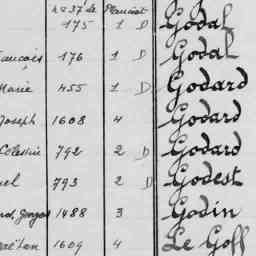 175 1 D Godal
rançois 176 1 D Godal
Marie 455 1 D Godard
Joseph 1608 4 Godard
Célestin 792 2 D Godard
el 793 2 D Godest
Georges 1488 3 Godin
aëtan 1609 4 Le Goff